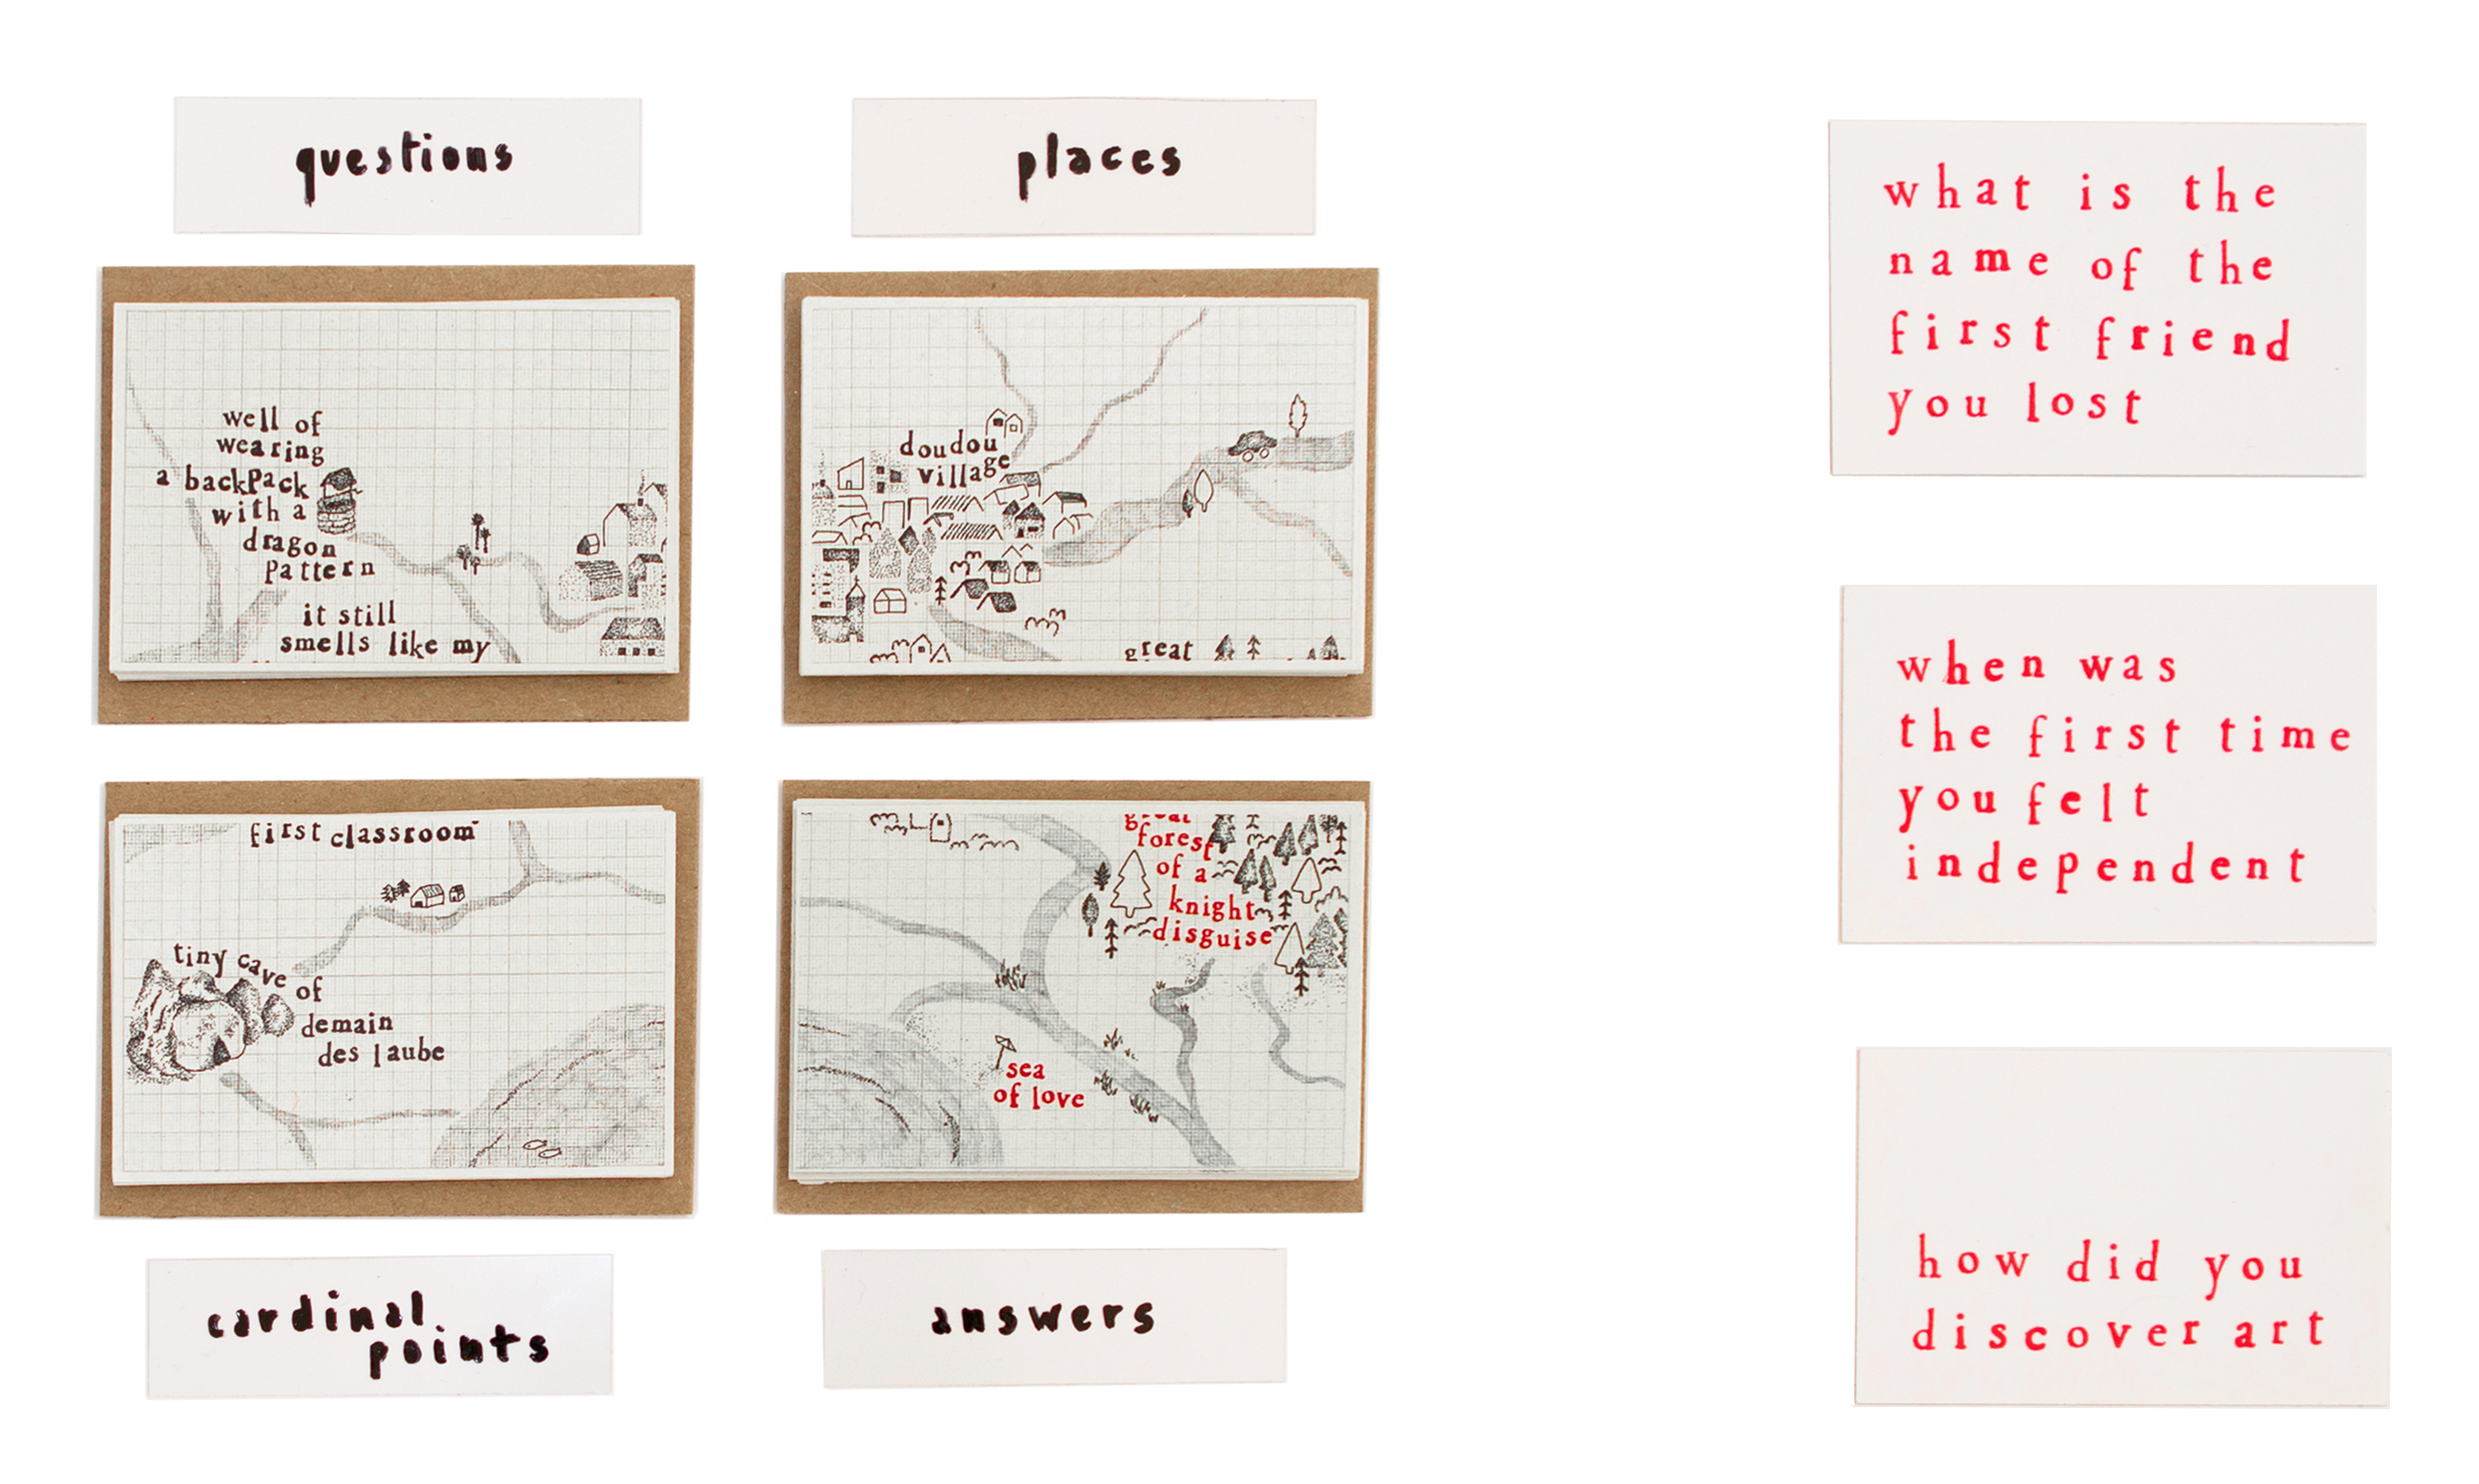 questions
places
well of
wearing
a backpack
with a
dragon
pattern
it still
smells like my
doudou
village
great
first classroom
tiny cave of
demain
des laube
great
forest
of a
knight
disguise
sea
of love
cardinal
points
answers
what is the
name of the
first friend
you lost
when was
the first time
you felt
independent
how did you
discover art